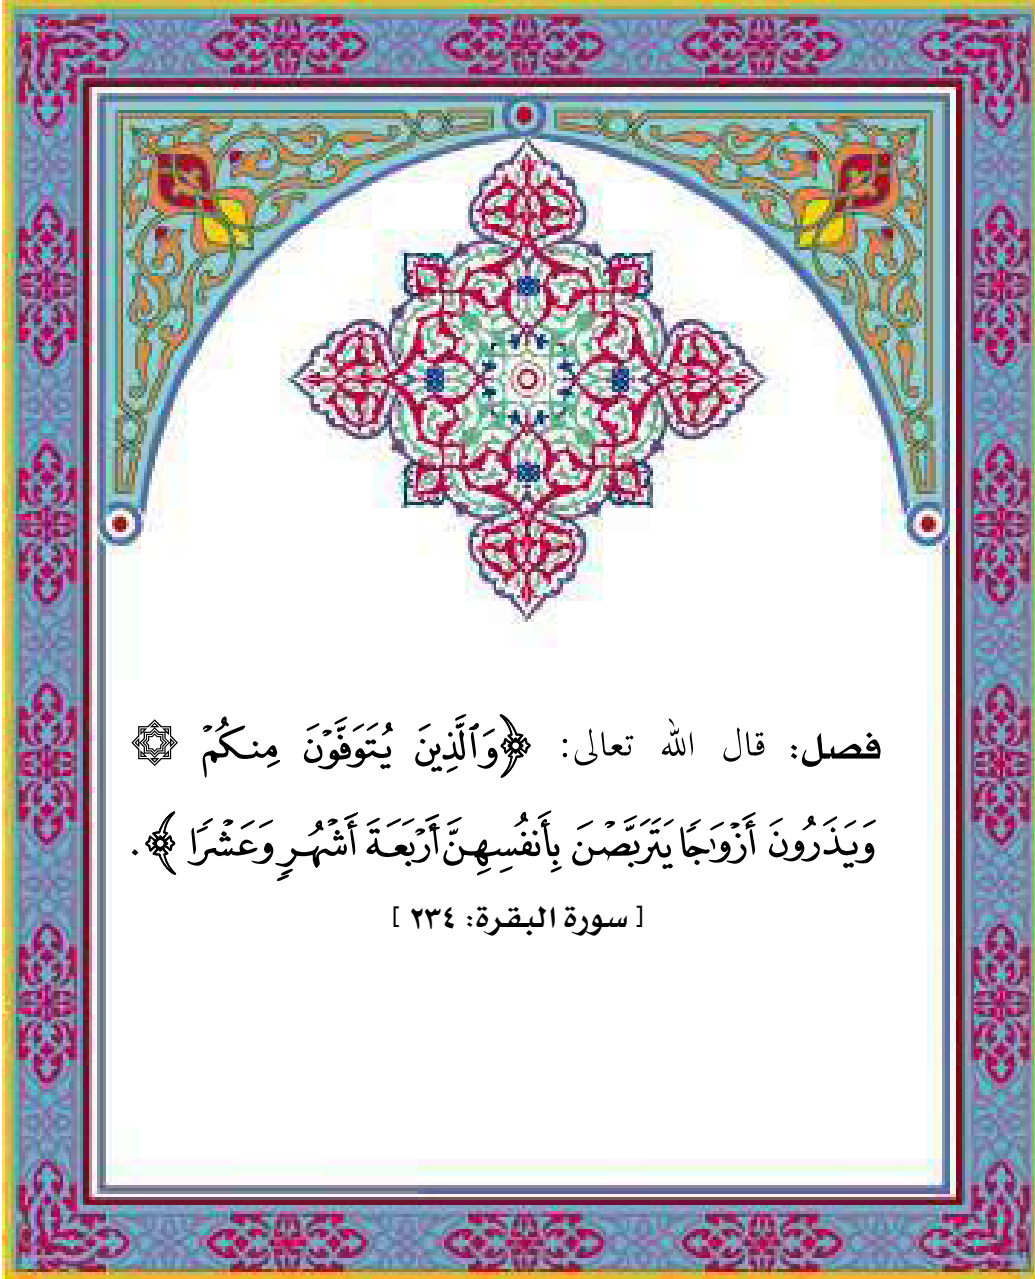 فصل: قال الله تعالى: ﴿وَٱلَّذِينَ يُتَوَفَّوۡنَ مِنكُمۡ ۞
وَيَذَرُونَ أَزۡوَٰجٗا يَتَرَبَّصۡنَ بِأَنفُسِهِنَّ أَرۡبَعَةَ أَشۡهُرٖ وَعَشۡرٗا ﴾.
[ سورة البقرة: ٢٣٤ ]